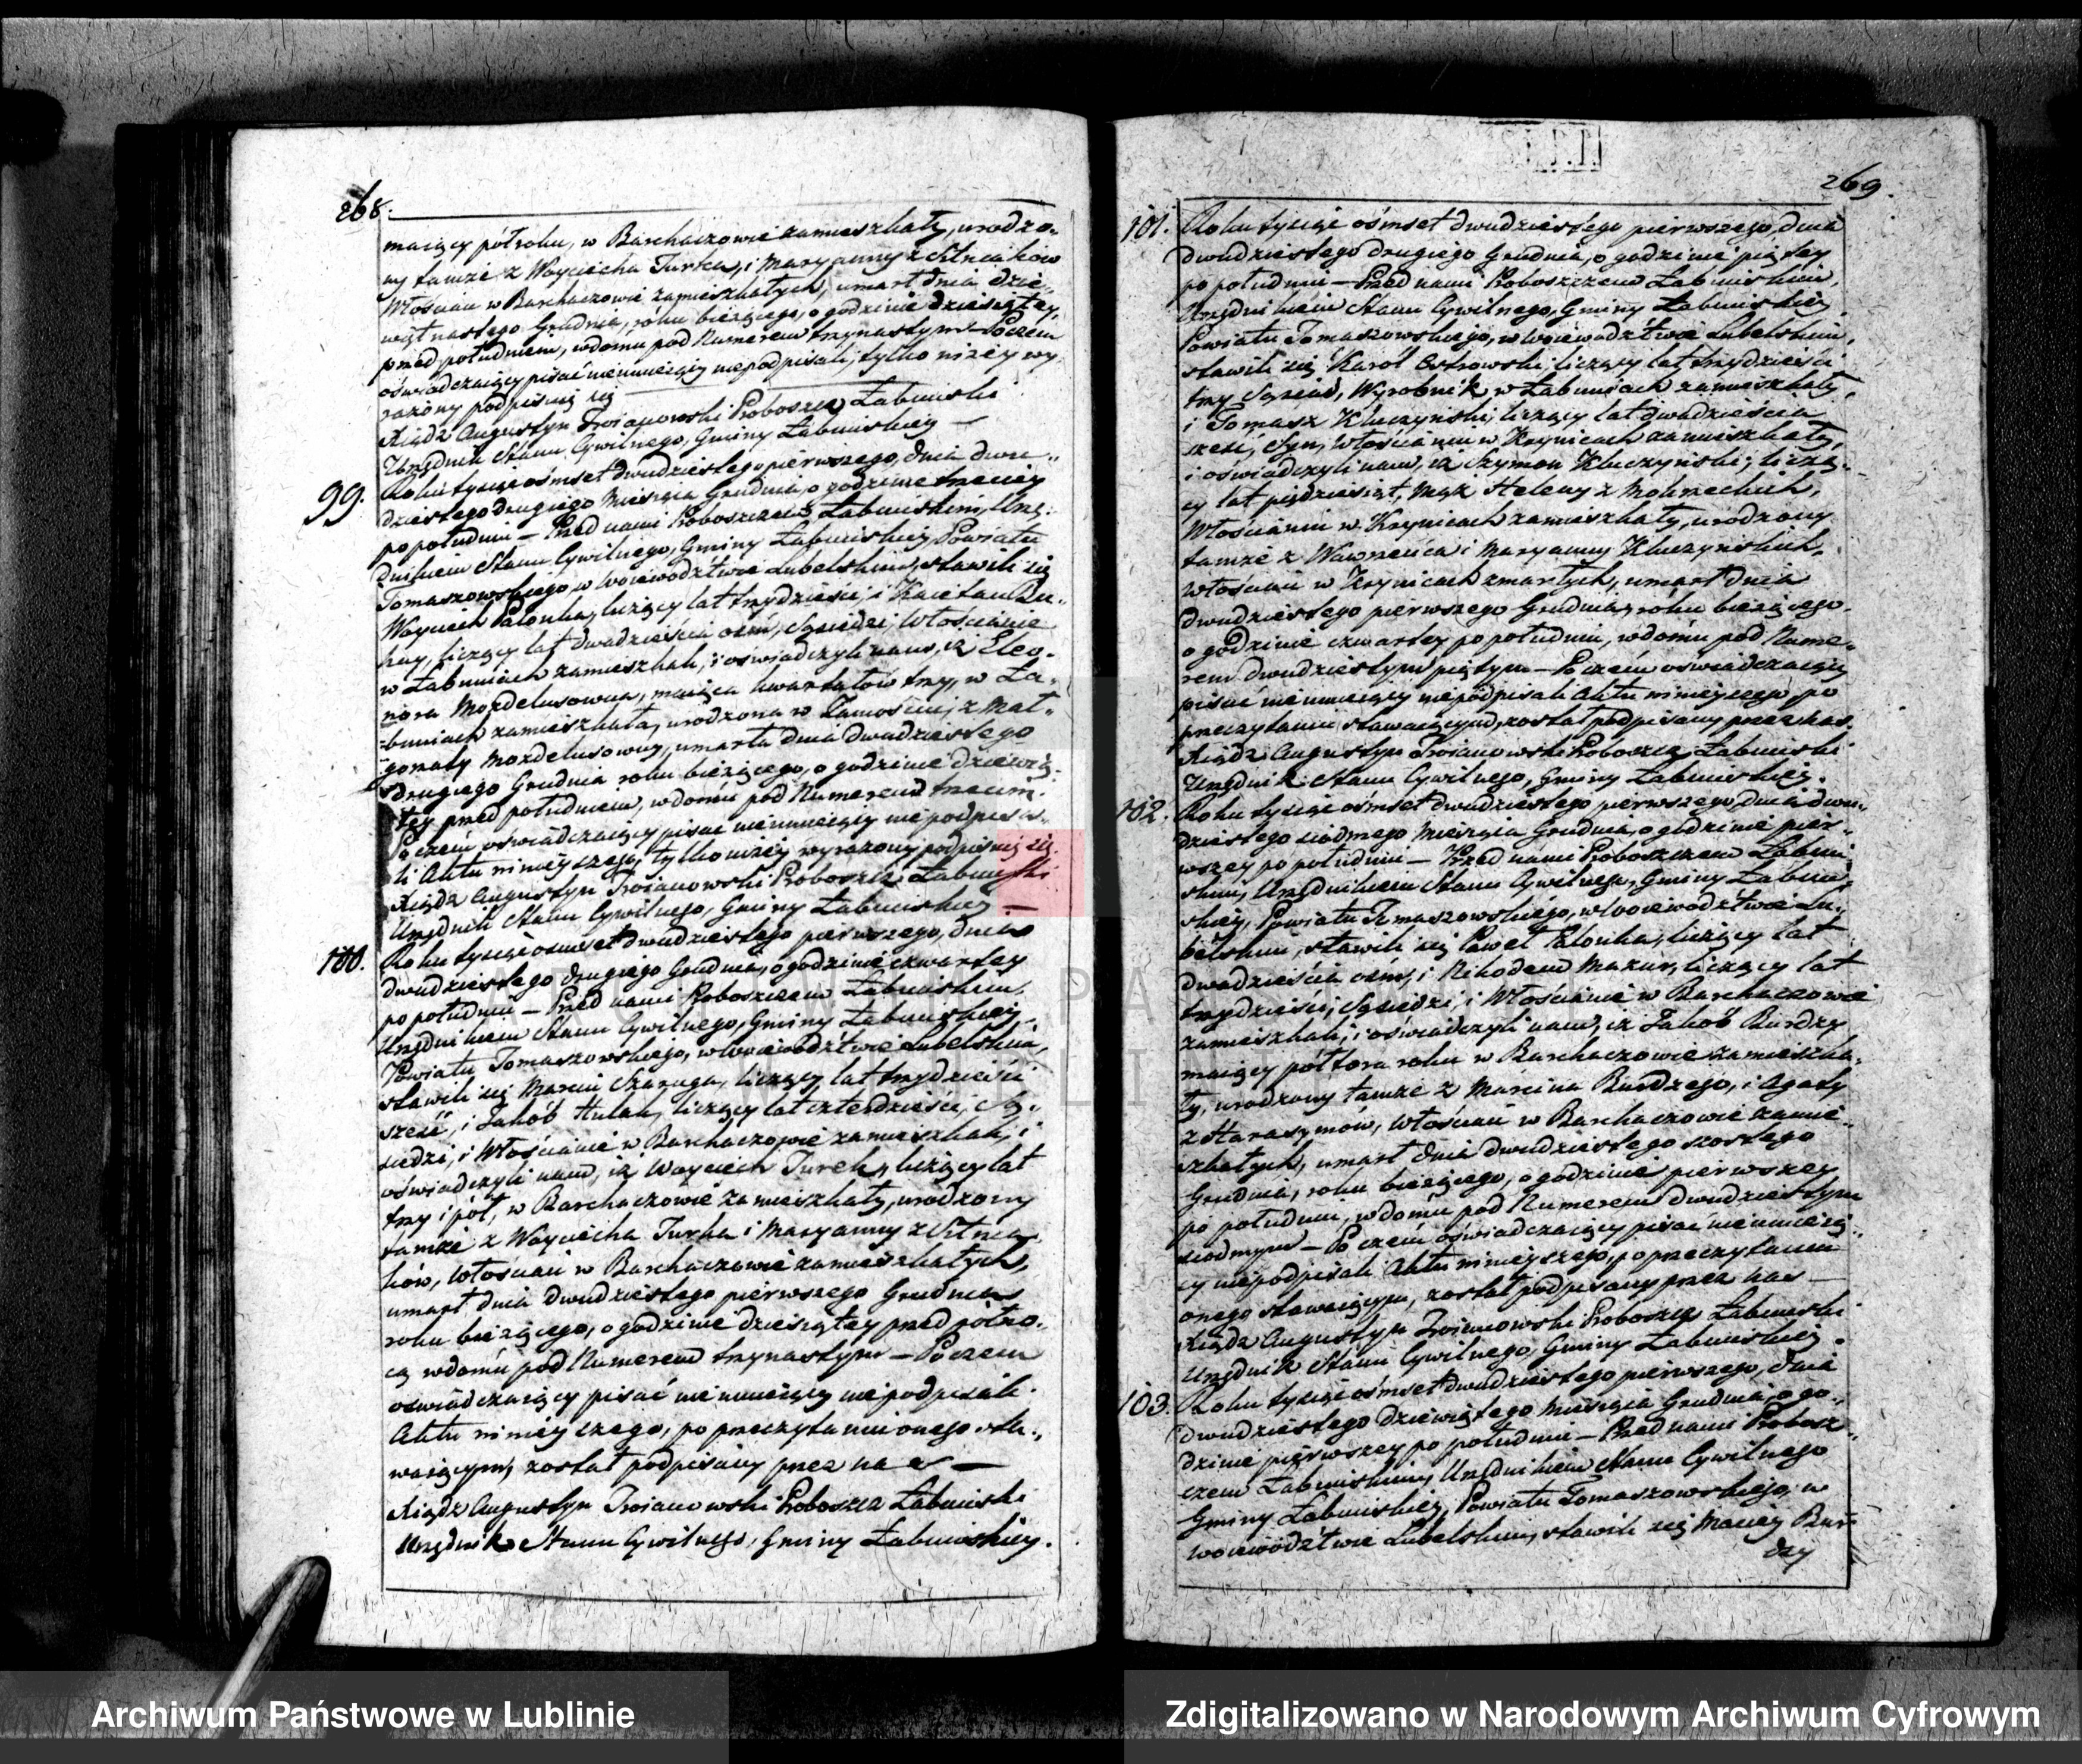 268.
maiący pół roku, w Barchaczowie zamieszkały, urodzo-
ny tamże z Woyciecha Turka, i Maryanny z Sitniaków
Włościan w Barchaczowie zamieszkałych, umarł dnia dzie-
więtnastego Grudnia, roku bieżącego, o godzinie dziesiątey
przed południem, w domu pod Numerem trzynastym – Poczem
oświadczaiący pisać nieumieiący niepodpisali, tylko niżey wy
rażony podpisuię się
Xiądz Augustyn Troianowski Proboszcz Łabuński
Urzędnik Stanu Cywilnego, Gminy Łabuńskiey —
99. Roku tysiąc ośmset dwudziestego pierwszego, dnia dwu-
dziestego drugiego Miesiąca Grudnia, o godzinie trzeciey
po południu – Przed nami Proboszczem Łabuńskim, Urzę-
dnikiem Stanu Cywilnego, Gminy Łabuńskiey Powiatu
Tomaszowskiego, w Woiewództwie Lubelskim, stawili się
Woyciech Palonka, liczący lat trzydzieści, i Kaietan
liczący lat dwadzieścia ośm, Sąsiedzi, Włościanie
w Łabuniach zamieszkali, i oświadczyli nam, iż Eleo-
nora Mozdelusowna, maiąca kwartałów trzy, w Ła-
buniach zamieszkała, urodzona w Zamościu, z Mał-
gorzaty Mozdelusowny, umarła dnia dwudziestego
drugiego Grudnia roku bieżącego, o godzinie dziewią-
tey przed południem, w domu pod Numerem trzecim.
Po czém oświadczaiący pisać nieumieiący nie podpisa-
li Aktu ninieyszego, tylko niżey wyrażony podpisuię się.
Xiądz Augustyn Troianowski Proboszcz Łabuński
Urzędnik Stanu Cywilnego, Gminy Łabuńskiey —
100. Roku tysiąc ośmset dwudziestego pierwszego, dnia
dwudziestego drugiego Grudnia, o godzinie czwartey
po południu – Przed nami Proboszczem Łabuńskim,
Urzędnikiem Stanu Cywilnego, Gminy Łabuńskiey
Powiatu Tomaszowskiego, w Woiewództwie Lubelskim,
stawili się Marcin Szaruga, liczący lat trzydzieści
sześć, i Jakób Hulak, liczący lat czterdzieści, Są-
siedzi, i Włościanie w Barchaczowie zamieszkali, i
oświadczyli nam, iż Woyciech Turek, liczący lat
trzy i pół, w Barchaczowie zamieszkały, urodzony
tamże z Woyciecha Turka i Maryanny z Sitnia-
ków, Włościan w Barchaczowie zamieszkałych,
umarł dnia dwudziestego pierwszego Grudnia
roku bieżącego, o godzinie dziesiątey przed półno-
cą w domu pod Numerem trzynastym – Poczem
oświadczaiący pisać nieumieiący niepodpisali
Aktu ninieyszego, po przeczytaniu onego sta-
waiącym, został podpisany przez nas —
Xiądz Augustyn Troianowski Proboszcz Łabuński
Urzędnik Stanu Cywilnego, Gminy Łabuńskiey.
269.
101. Roku tysiąc ośmset dwudziestego pierwszego, dnia
dwudziestego drugiego Grudnia, o godzinie piątey
po południu – Przed nami Proboszczem Łabuńskim,
Urzędnikiem Stanu Cywilnego, Gminy Łabuńskiey
Powiatu Tomaszowskiego, w Woiewództwie Lubelskim,
stawili się Karol Ostrowski liczący lat trzydzieści
trzy Sąsiad, Wyrobnik w Łabuniach zamieszkały,
i Tomasz Kluczyński, liczący lat dwadzieścia
sześć, Syn, Włościanin w Krynicach zamieszkały,
i oświadczyli nam, iż Szymon Kluczyński, liczą-
cy lat pięćdziesiąt, Mąż Heleny z
Włościanin w Krynicach zamieszkały, urodzony
tamże z Wawrzeńca i Maryanny Kluczyńskich,
Włościan w Krynicach zmarłych, umarł dnia
dwudziestego pierwszego Grudnia, roku bieżącego
o godzinie czwartey po południu, w domu pod Nume-
rem dwudziestym piątym – Po czém oświadczaiący
pisać nieumieiący niepodpisali Aktu ninieyszego, po
przeczytaniu stawaiącym, został podpisany przez nas.
Xiądz Augustyn Troianowski Proboszcz Łabuński
Urzędnik Stanu Cywilnego, Gminy Łabuńskiey.
102. Roku tysiąc ośmset dwudziestego pierwszego, dnia dwu-
dziestego siódmego Miesiąca Grudnia, o godzinie pier-
wszey po południu – Przed nami Proboszczem Łabuń-
skim, Urzędnikiem Stanu Cywilnego, Gminy Łabuń-
skiey, Powiatu Tomaszowskiego, w Woiewództwie Lu-
belskim, stawili się Paweł Palonka, liczący lat
dwadzieścia ośm, i Nikodem Mazur, liczący lat
trzydzieści, Sąsiedzi, i Włościanie w Barchaczowie
zamieszkali, i oświadczyli nam, iż Jakób Burdzy
maiący półtora roku w Barchaczowie zamieszka-
ły, urodzony tamże z Marcina Burdzego, i Agaty
z Harasymów, Włościan w Barchaczowie zamie-
szkałych, umarł dnia dwudziestego szóstego
Grudnia, roku bieżącego, o godzinie pierwszey
po południu, w domu pod Numerem dwudziestym
siódmym – Po czém oświadczaiący pisać nieumieią-
cy niepodpisali Aktu ninieyszego, po przeczytaniu
onego stawaiącym, został podpisany przez nas —
Xiądz Augustyn Troianowski Proboszcz Łabuński
Urzędnik Stanu Cywilnego, Gminy Łabuńskiey.
103. Roku tysiąc ośmset dwudziestego pierwszego, dnia
dwudziestego dziewiątego Miesiąca Grudnia, o go-
dzinie pierwszey po południu – Przed nami Probosz-
czem Łabuńskim, Urzędnikiem Stanu Cywilnego
Gminy Łabuńskiey, Powiatu Tomaszowskiego, w
Woiewództwie Lubelskim, stawili się Maciey Bur-
dzy
Archiwum Państwowe w Lublinie
Zdigitalizowano w Narodowym Archiwum Cyfrowym